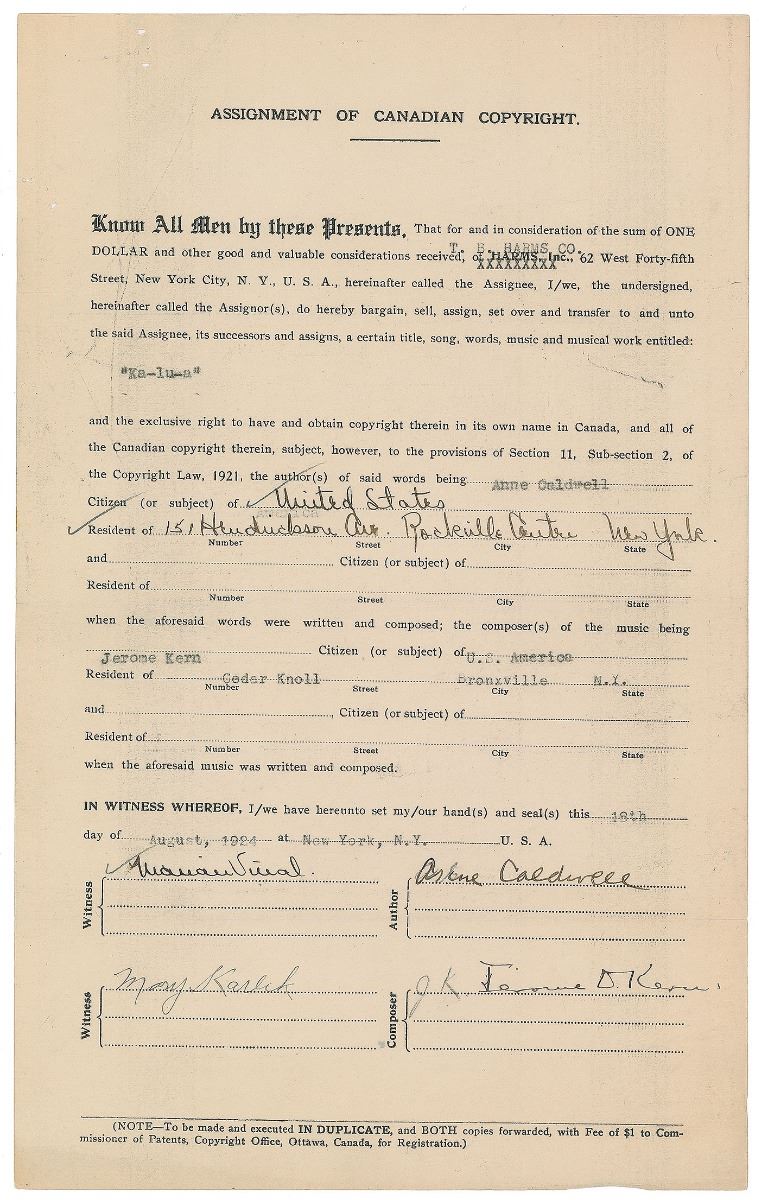 ASSIGNMENT OF CANADIAN COPYRIGHT.
Know All Men by these Presents, That for and in consideration of the sum of ONE
T. B. HARMS CO.
DOLLAR and other good and valuable considerations received, of HARMS, Inc., 62 West Forty-fifth
XXXXXXXXX
Street, New York City, N. Y., U. S. A., hereinafter called the Assignee, I/we, the undersigned,
hereinafter called the Assignor(s), do hereby bargain, sell, assign, set over and transfer to and unto
the said Assignee, its successors and assigns, a certain title, song, words, music and musical work entitled:
"Ka-lu-a"
and the exclusive right to have and obtain copyright therein in its own name in Canada, and all of
the Canadian copyright therein, subject, however, to the provisions of Section 11, Sub-section 2, of
the Copyright Law, 1921, the author(s) of said words being Anne Caldwell
Citizen (or subject) of United States
Resident of 151 Hendrickson Ave. Rockville Centre New York.
Number Street City State
and Citizen (or subject) of
Resident of
Number Street City State
when the aforesaid words were written and composed; the composer(s) of the music being
Jerome Kern Citizen (or subject) of U.S. America
Resident of Cedar Knoll Bronxville N.Y.
Number Street City State
and , Citizen (or subject) of
Resident of
Number Street City State
when the aforesaid music was written and composed.
IN WITNESS WHEREOF, I/we have hereunto set my/our hand(s) and seal(s) this 18th
day of August, 1924 at New York, N.Y. U. S. A.
Witness Marian Author Anne Caldwell
Witness Mary Karlik Composer J.K. Jerome D. Kern.
(NOTE—To be made and executed IN DUPLICATE, and BOTH copies forwarded, with Fee of $1 to Com-
missioner of Patents, Copyright Office, Ottawa, Canada, for Registration.)